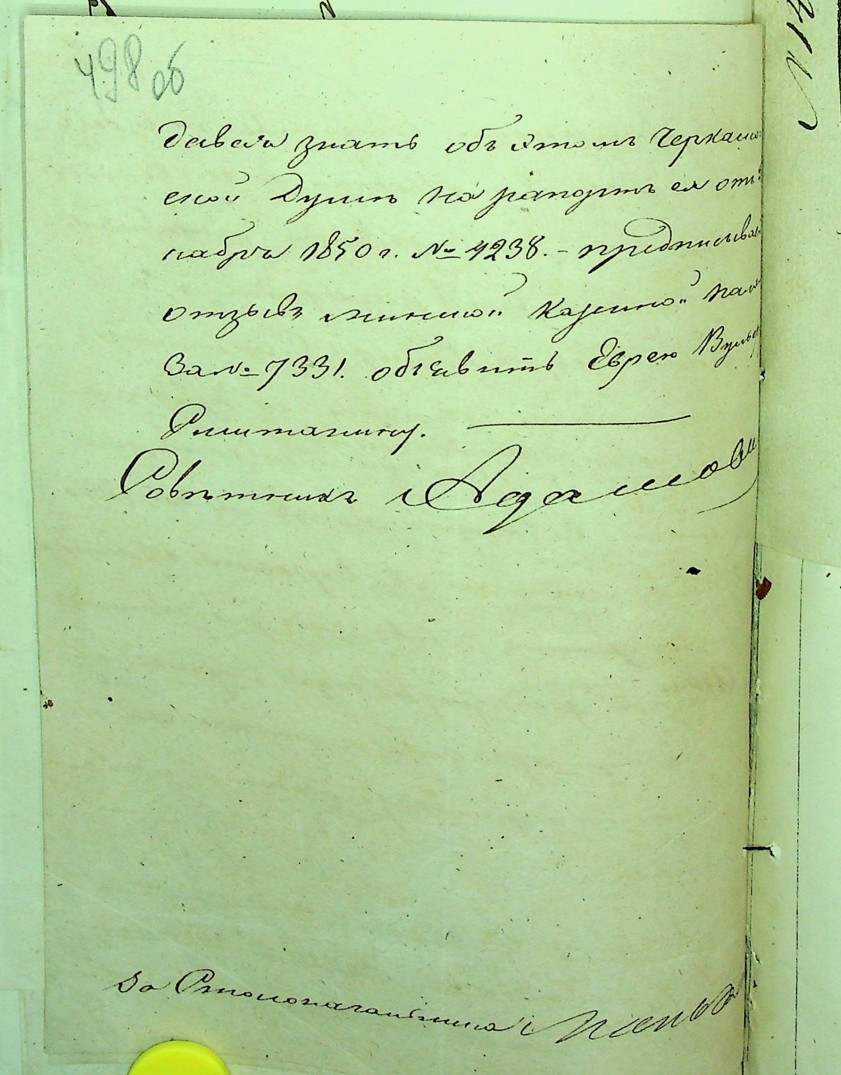 498 об
давая знать объ этомъ Черкас
ской Думѣ на рапортъ ея отъ
ноября 1850 г. № 4238. - предписыва
отзывъ Минской Казенной Пала
за № 7331. объявить Еврею

Совѣтникъ Адамови
За Столоначальника